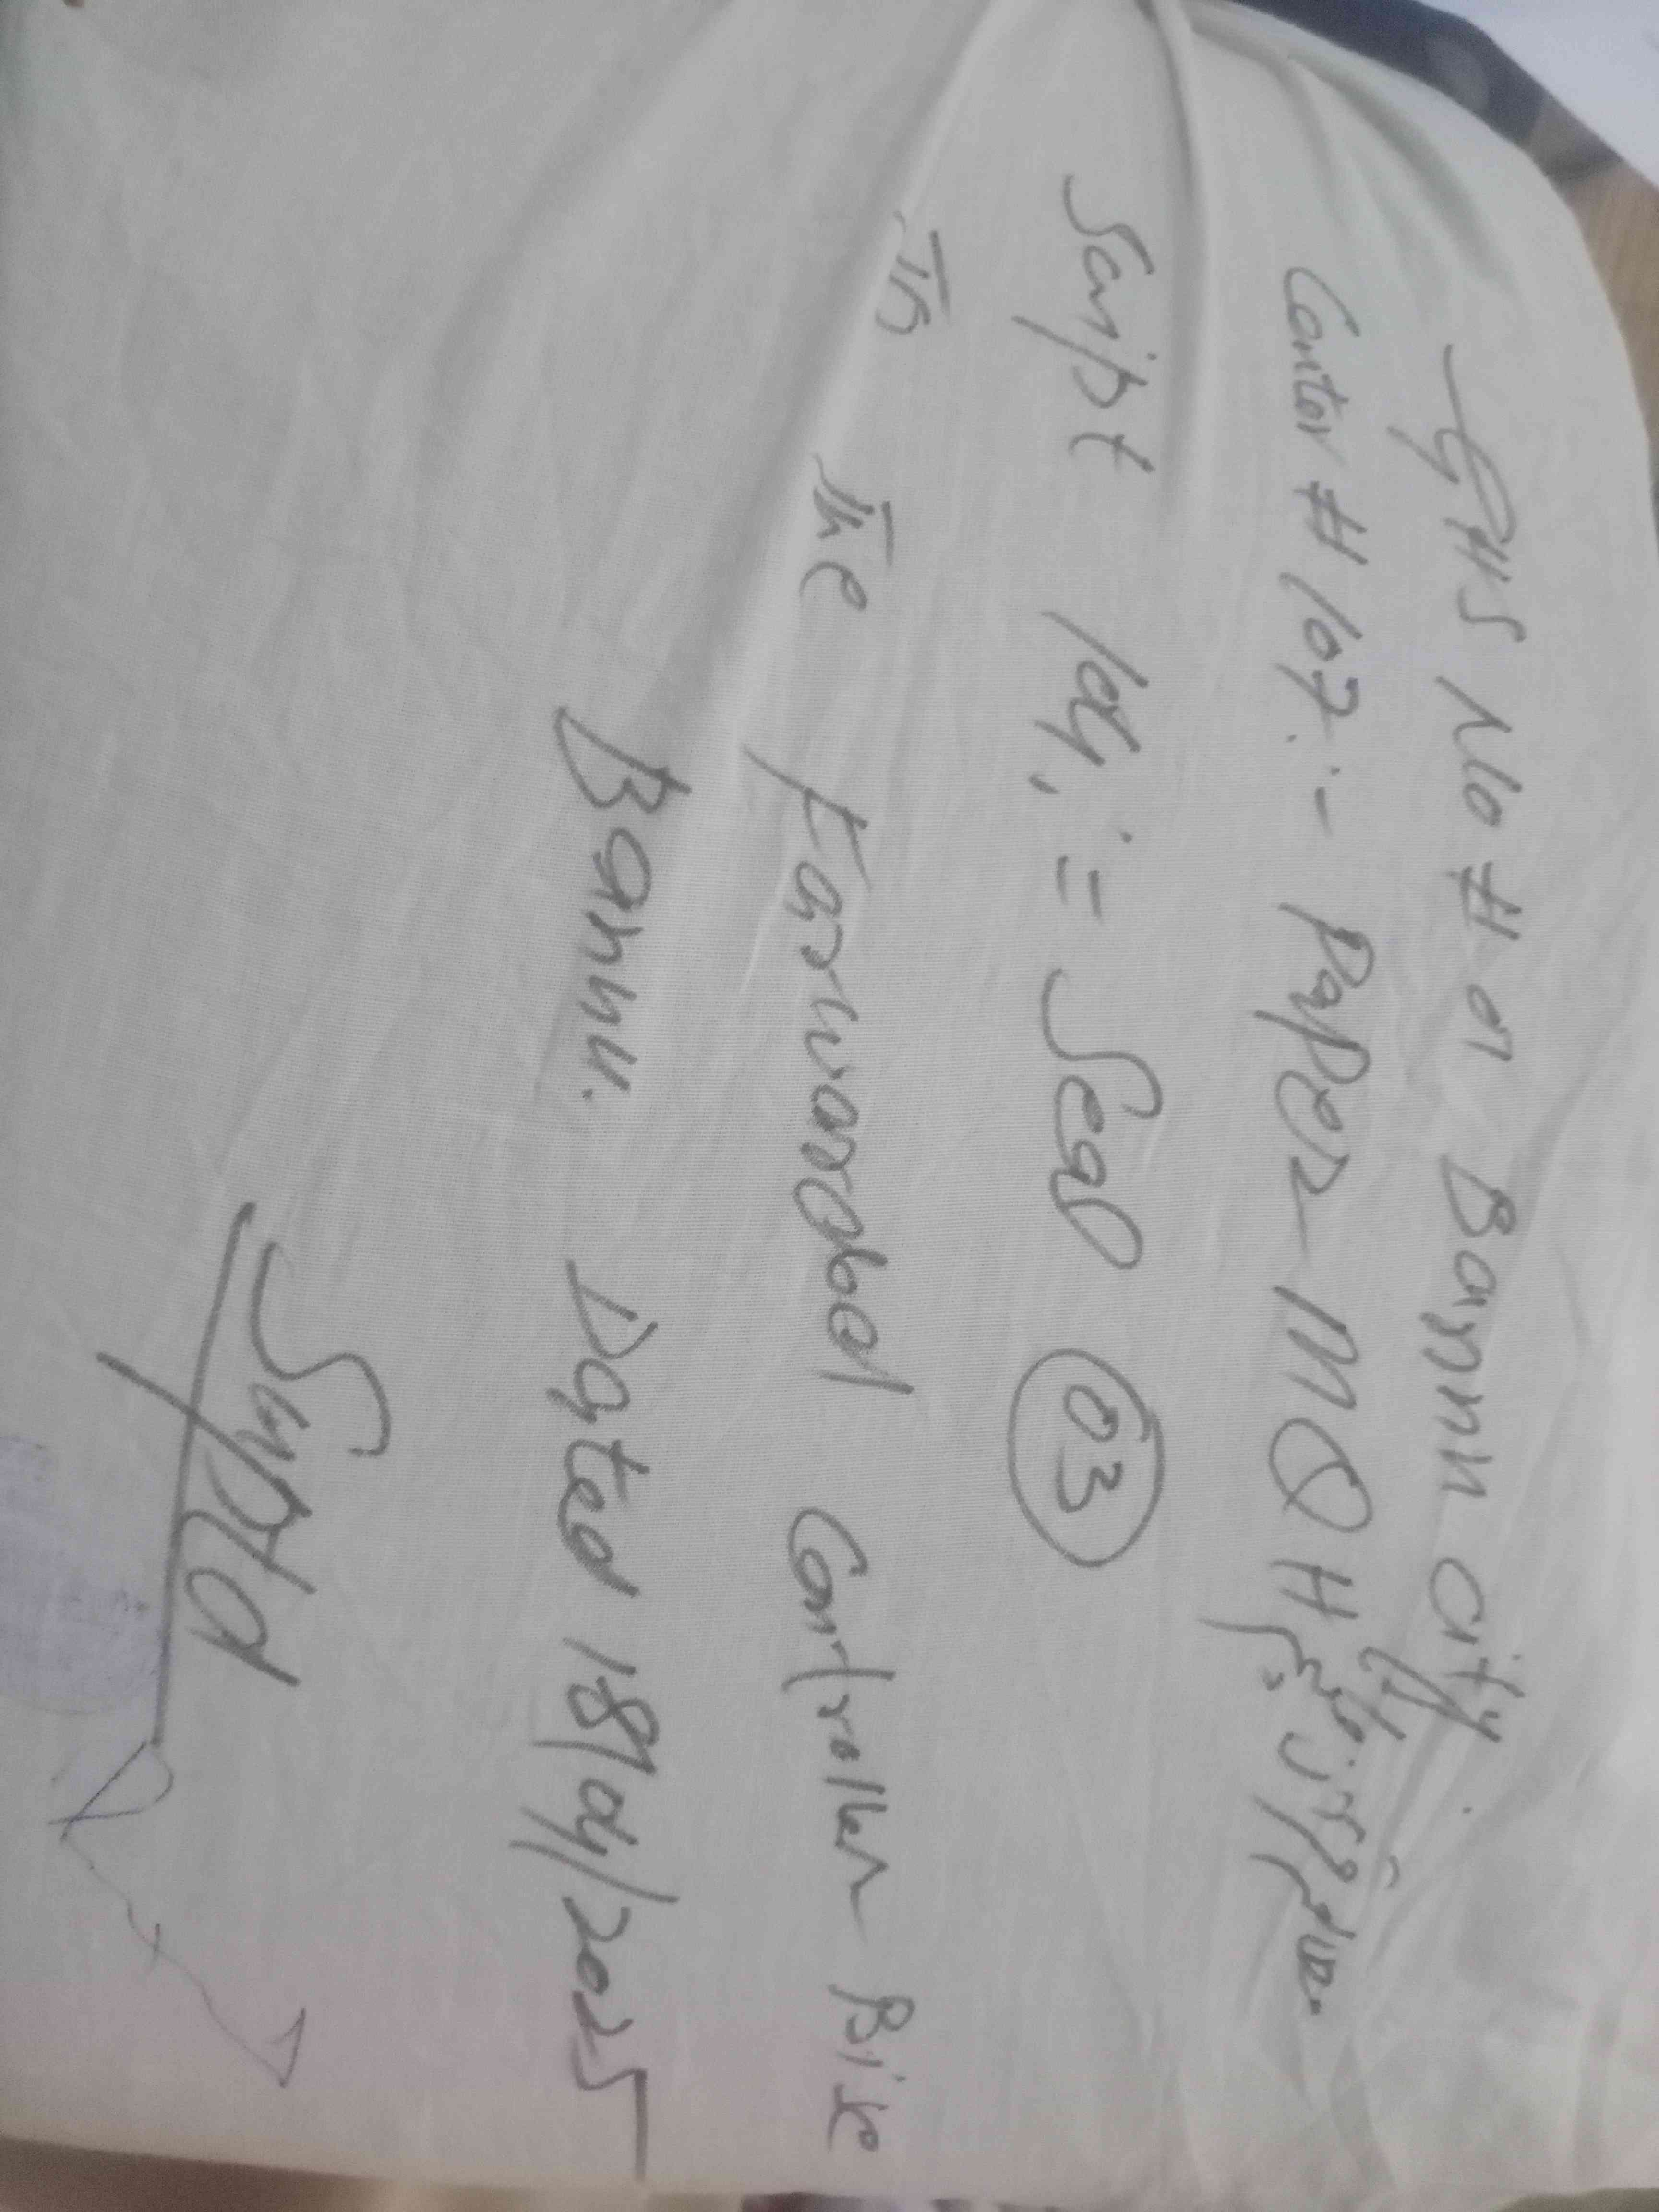 GHS No # 01 Bannu City.
Center # 107 :- Paper MQH
Script 104 := Seal 03
To
The Forwarded Controller Bise
Bannu. Dated 18/04/2025
Suptd